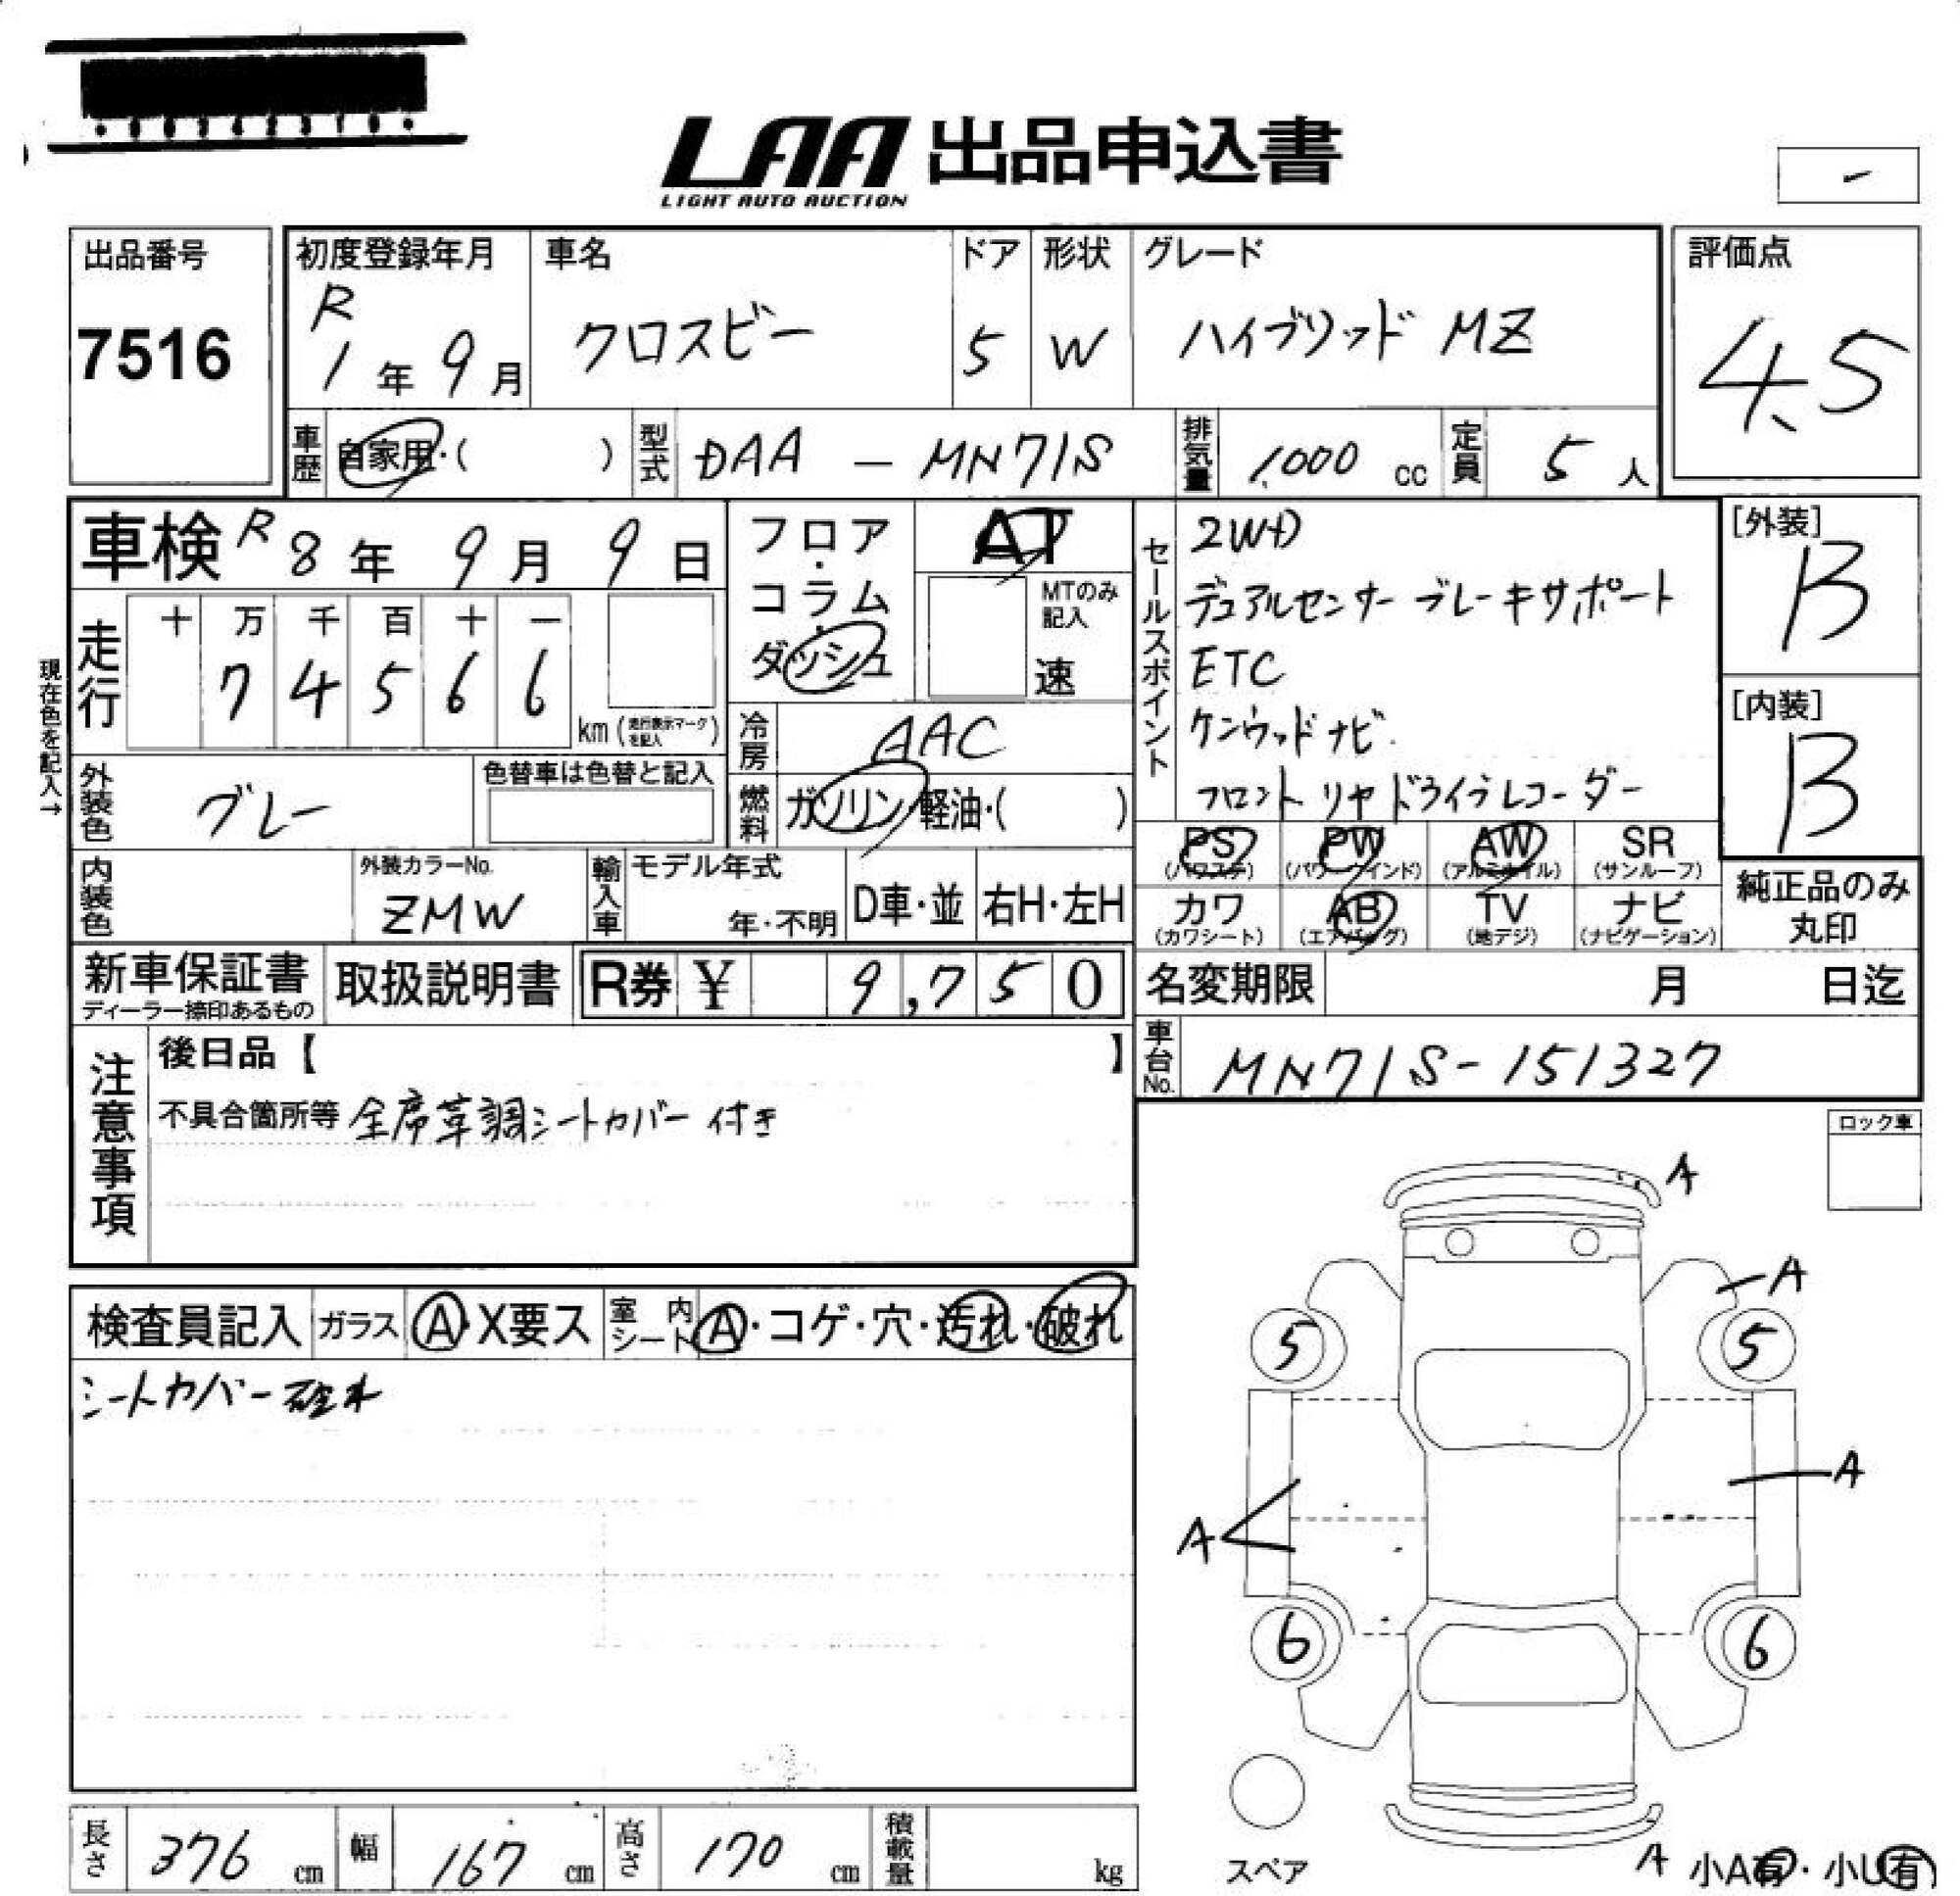 LAA 出品申込書
LIGHT AUTO AUCTION
-
出品番号
7516
初度登録年月
R
1 年 9 月
車名
クロスビー
ドア
5
形状
W
グレード
ハイブリッド MZ
評価点
4.5
車歴
自家用・( )
型式
DAA - MN71S
排気量
1,000 cc
定員
5 人
車検 R 8 年 9 月 9 日
フロア・コラム・ダッシュ
AT
MTのみ記入
速
セールスポイント
2WD
デュアルセンサー ブレーキサポート
ETC
ケンウッド ナビ
フロント リヤ ドライブレコーダー
[外装]
B
[内装]
B
現在色を記入→
走行
十 万 千 百 十 一
7 4 5 6 6
km (走行表示マークを記入)
冷房
AAC
燃料
ガソリン・軽油・( )
外装色
グレー
色替車は色替と記入
内装色
外装カラーNo.
ZMW
輸入車
モデル年式
年・不明
D車・並
右H・左H
PS (パワステ)
PW (パワーウインド)
AW (アルミホイル)
SR (サンルーフ)
カワ (カワシート)
AB (エアバッグ)
TV (地デジ)
ナビ (ナビゲーション)
純正品のみ
丸印
新車保証書
ディーラー捺印あるもの
取扱説明書
R券 ¥ 9,750
名変期限 月 日迄
車台No.
MN71S-151327
注意事項
後日品【 】
不具合箇所等 全席革調シートカバー 付き
ロック車
検査員記入
ガラス
A・X要ス
室内シート
A・コゲ・穴・汚れ・破れ
シートカバー破れ
A
A
5
5
A
A
6
6
スペア
A
小A有・小U有
長さ 376 cm
幅 167 cm
高さ 170 cm
積載量 kg